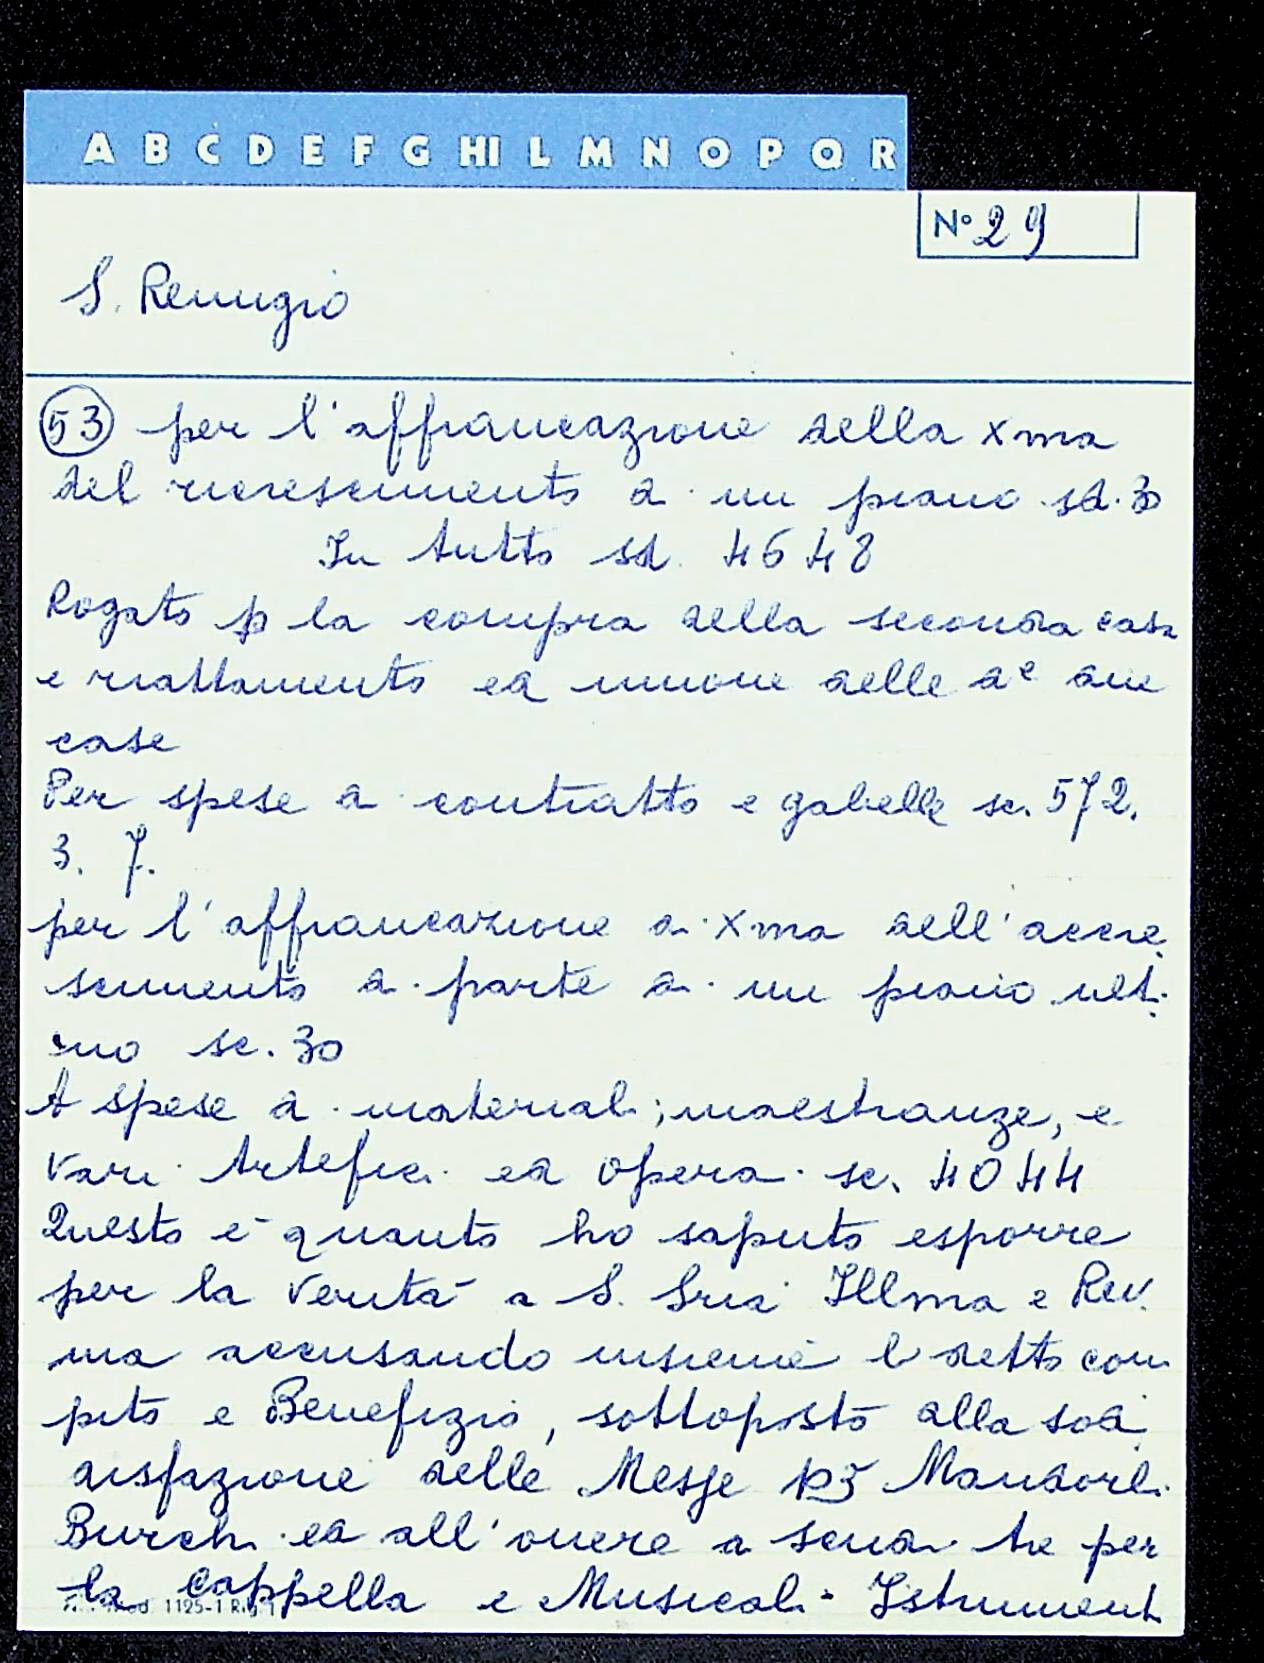 A B C D E F G HI L M N O P Q R
N° 29
S. Remigio
53 per l'affrancazione della Xma
del ricrescimento di un piano sd. 30
In tutto sd. 4648
Rogato p la compra della seconda casa
e riattamento ed unione delle de due
case
Per spese di contratto e gabelle sc. 572.
3. 7.
per l'affrancazione di Xma dell'accre
scimento di parte di un piano ulti
mo sc. 30
A spese di materiali, maestranze, e
vari Artefici ed opera sc. 4044
Questo è quanto ho saputo esporre
per la verità a S. Sria Illma e Rev.
ma accusando insieme il detto com
pito e Benefizio, sottoposto alla sod
disfazione delle Messe Mandorli
Burchi ed all'onere di scudi tre per
la Cappella e Musicali Istrumenti
Mod. 1125-1 Rig.